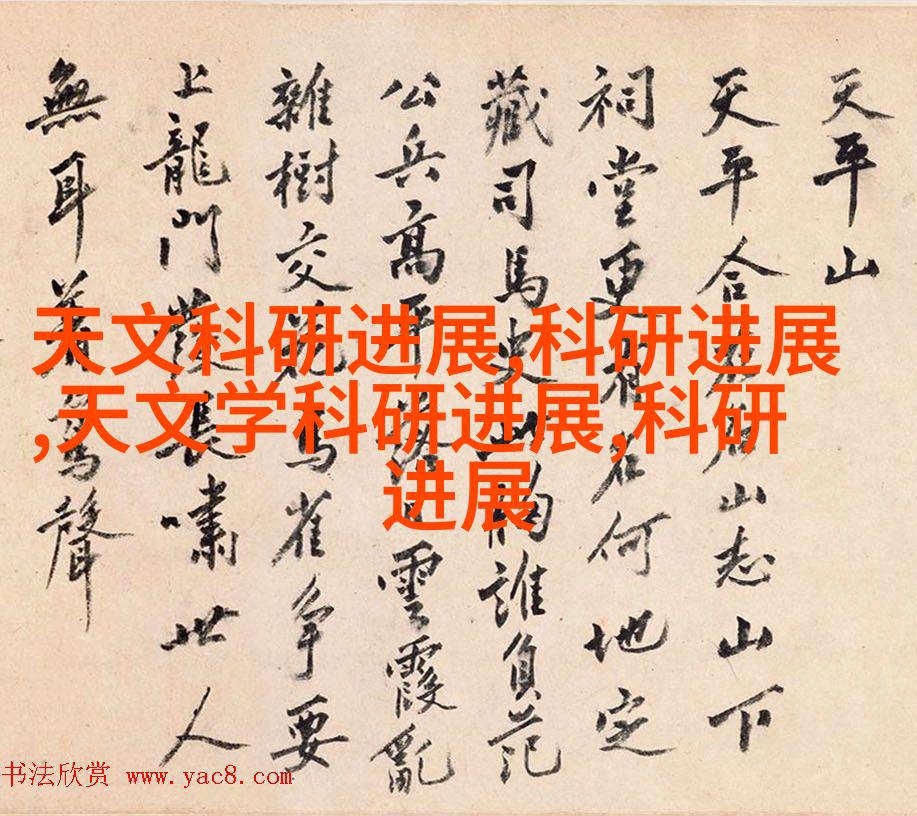 天平山
天平合名山志山下
祠堂更有名何地定
藏司馬史胸誰負范
公兵高平落日雲霞亂
雜樹交花鳥雀爭要
上龍門發長嘯世人
無耳聲
天文科研进展,科研进展
,天文学科研进展,科研
进展
书法欣赏 www.yac8.com